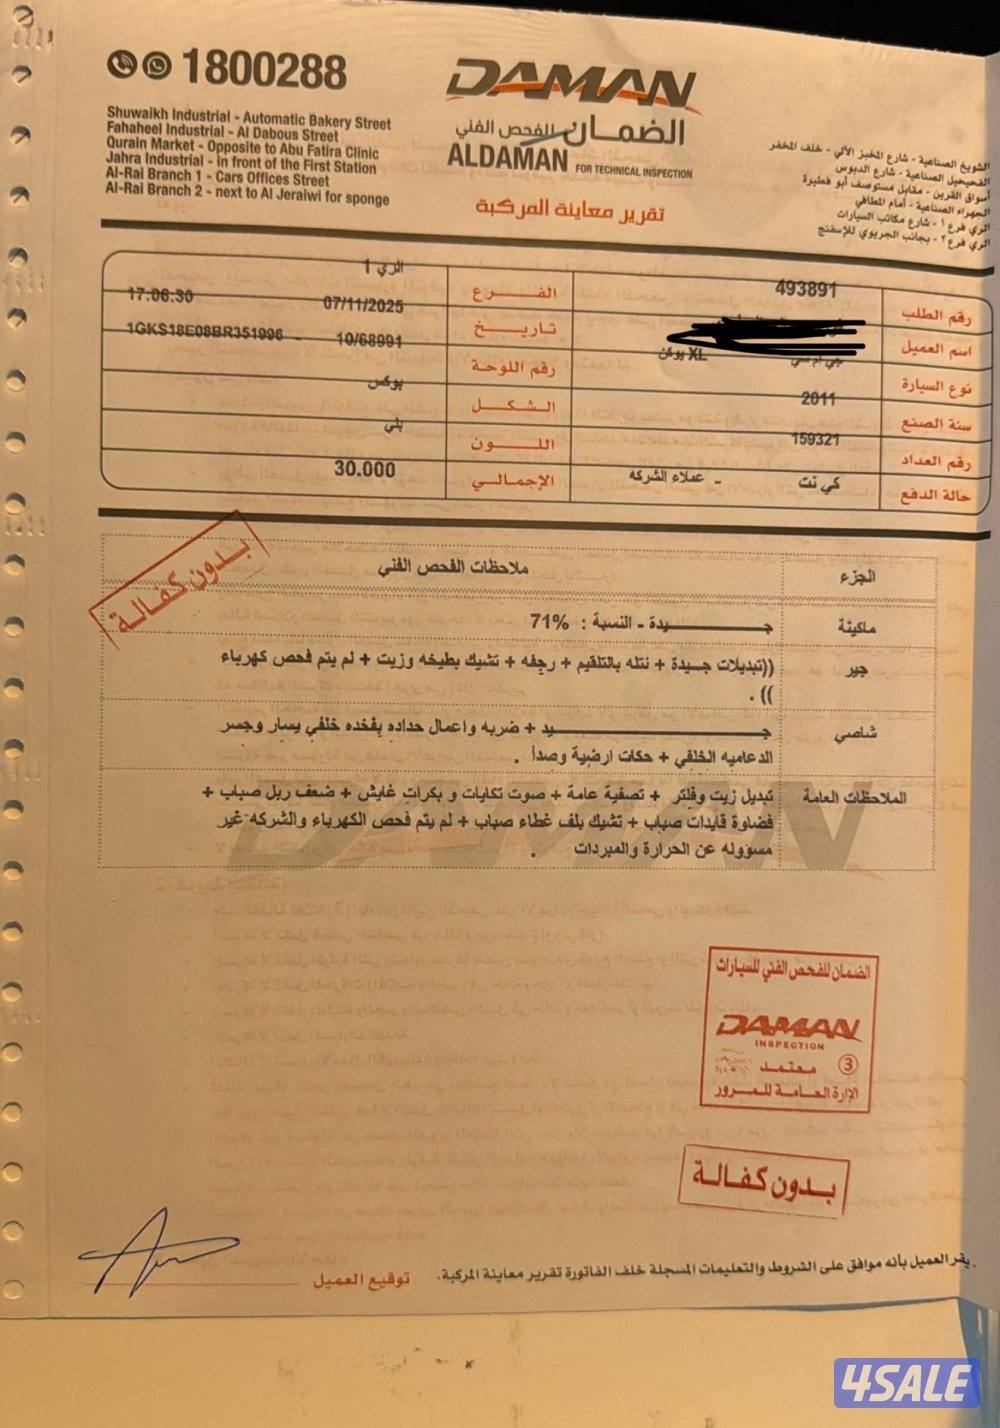 1800288
Shuwaikh Industrial - Automatic Bakery Street
Fahaheel Industrial - Al Dabous Street
Qurain Market - Opposite to Abu Fatira Clinic
Jahra Industrial - in front of the First Station
Al-Rai Branch 1 - Cars Offices Street
Al-Rai Branch 2 - next to Al Jeraiwi for sponge
DAMAN
الضمان للفحص الفني
ALDAMAN FOR TECHNICAL INSPECTION
تقرير معاينة المركبة
الشويخ الصناعية - شارع المخبز الألي - خلف المخفر
الفحيحيل الصناعية - شارع الدبوس
أسواق القرين - مقابل مستوصف أبو فطيرة
الجهراء الصناعية - أمام المطافي
الري فرع ١ - شارع مكاتب السيارات
الري فرع ٢ - بجانب الجريوي للإسفنج
رقم الطلب 493891 الفرع الري 1
اسم العميل تاريخ 07/11/2025 17:06:30
نوع السيارة جي ام سي يوكن XL رقم اللوحة 10/68991 - 1GKS18E08BR351996
سنة الصنع 2011 الشكل بوكس
رقم العداد 159321 اللون بلي
حالة الدفع كي نت - عملاء الشركه الإجمالي 30.000
بدون كفالة
الجزء ملاحظات الفحص الفني
ماكينة جيدة - النسبة : 71%
جير ((تبديلات جيدة + نتله بالتلقيم + رجفه + تشيك بطيخه وزيت + لم يتم فحص كهرباء
)) .
شاصي جيد + ضربه واعمال حداده بفخده خلفي يسار وجسر
الدعاميه الخلفي + حكات ارضية وصدأ .
الملاحظات العامة تبديل زيت وفلتر + تصفية عامة + صوت تكايات و بكرات غايش + ضعف ربل صباب +
فضاوة قايدات صباب + تشيك بلف غطاء صباب + لم يتم فحص الكهرباء والشركه غير
مسؤوله عن الحرارة والمبردات .
الضمان للفحص الفني للسيارات
DAMAN
INSPECTION
معتمد 3
الإدارة العامة للمرور
بدون كفالة
يقر العميل بأنه موافق على الشروط والتعليمات المسجلة خلف الفاتورة تقرير معاينة المركبة.
توقيع العميل
4SALE